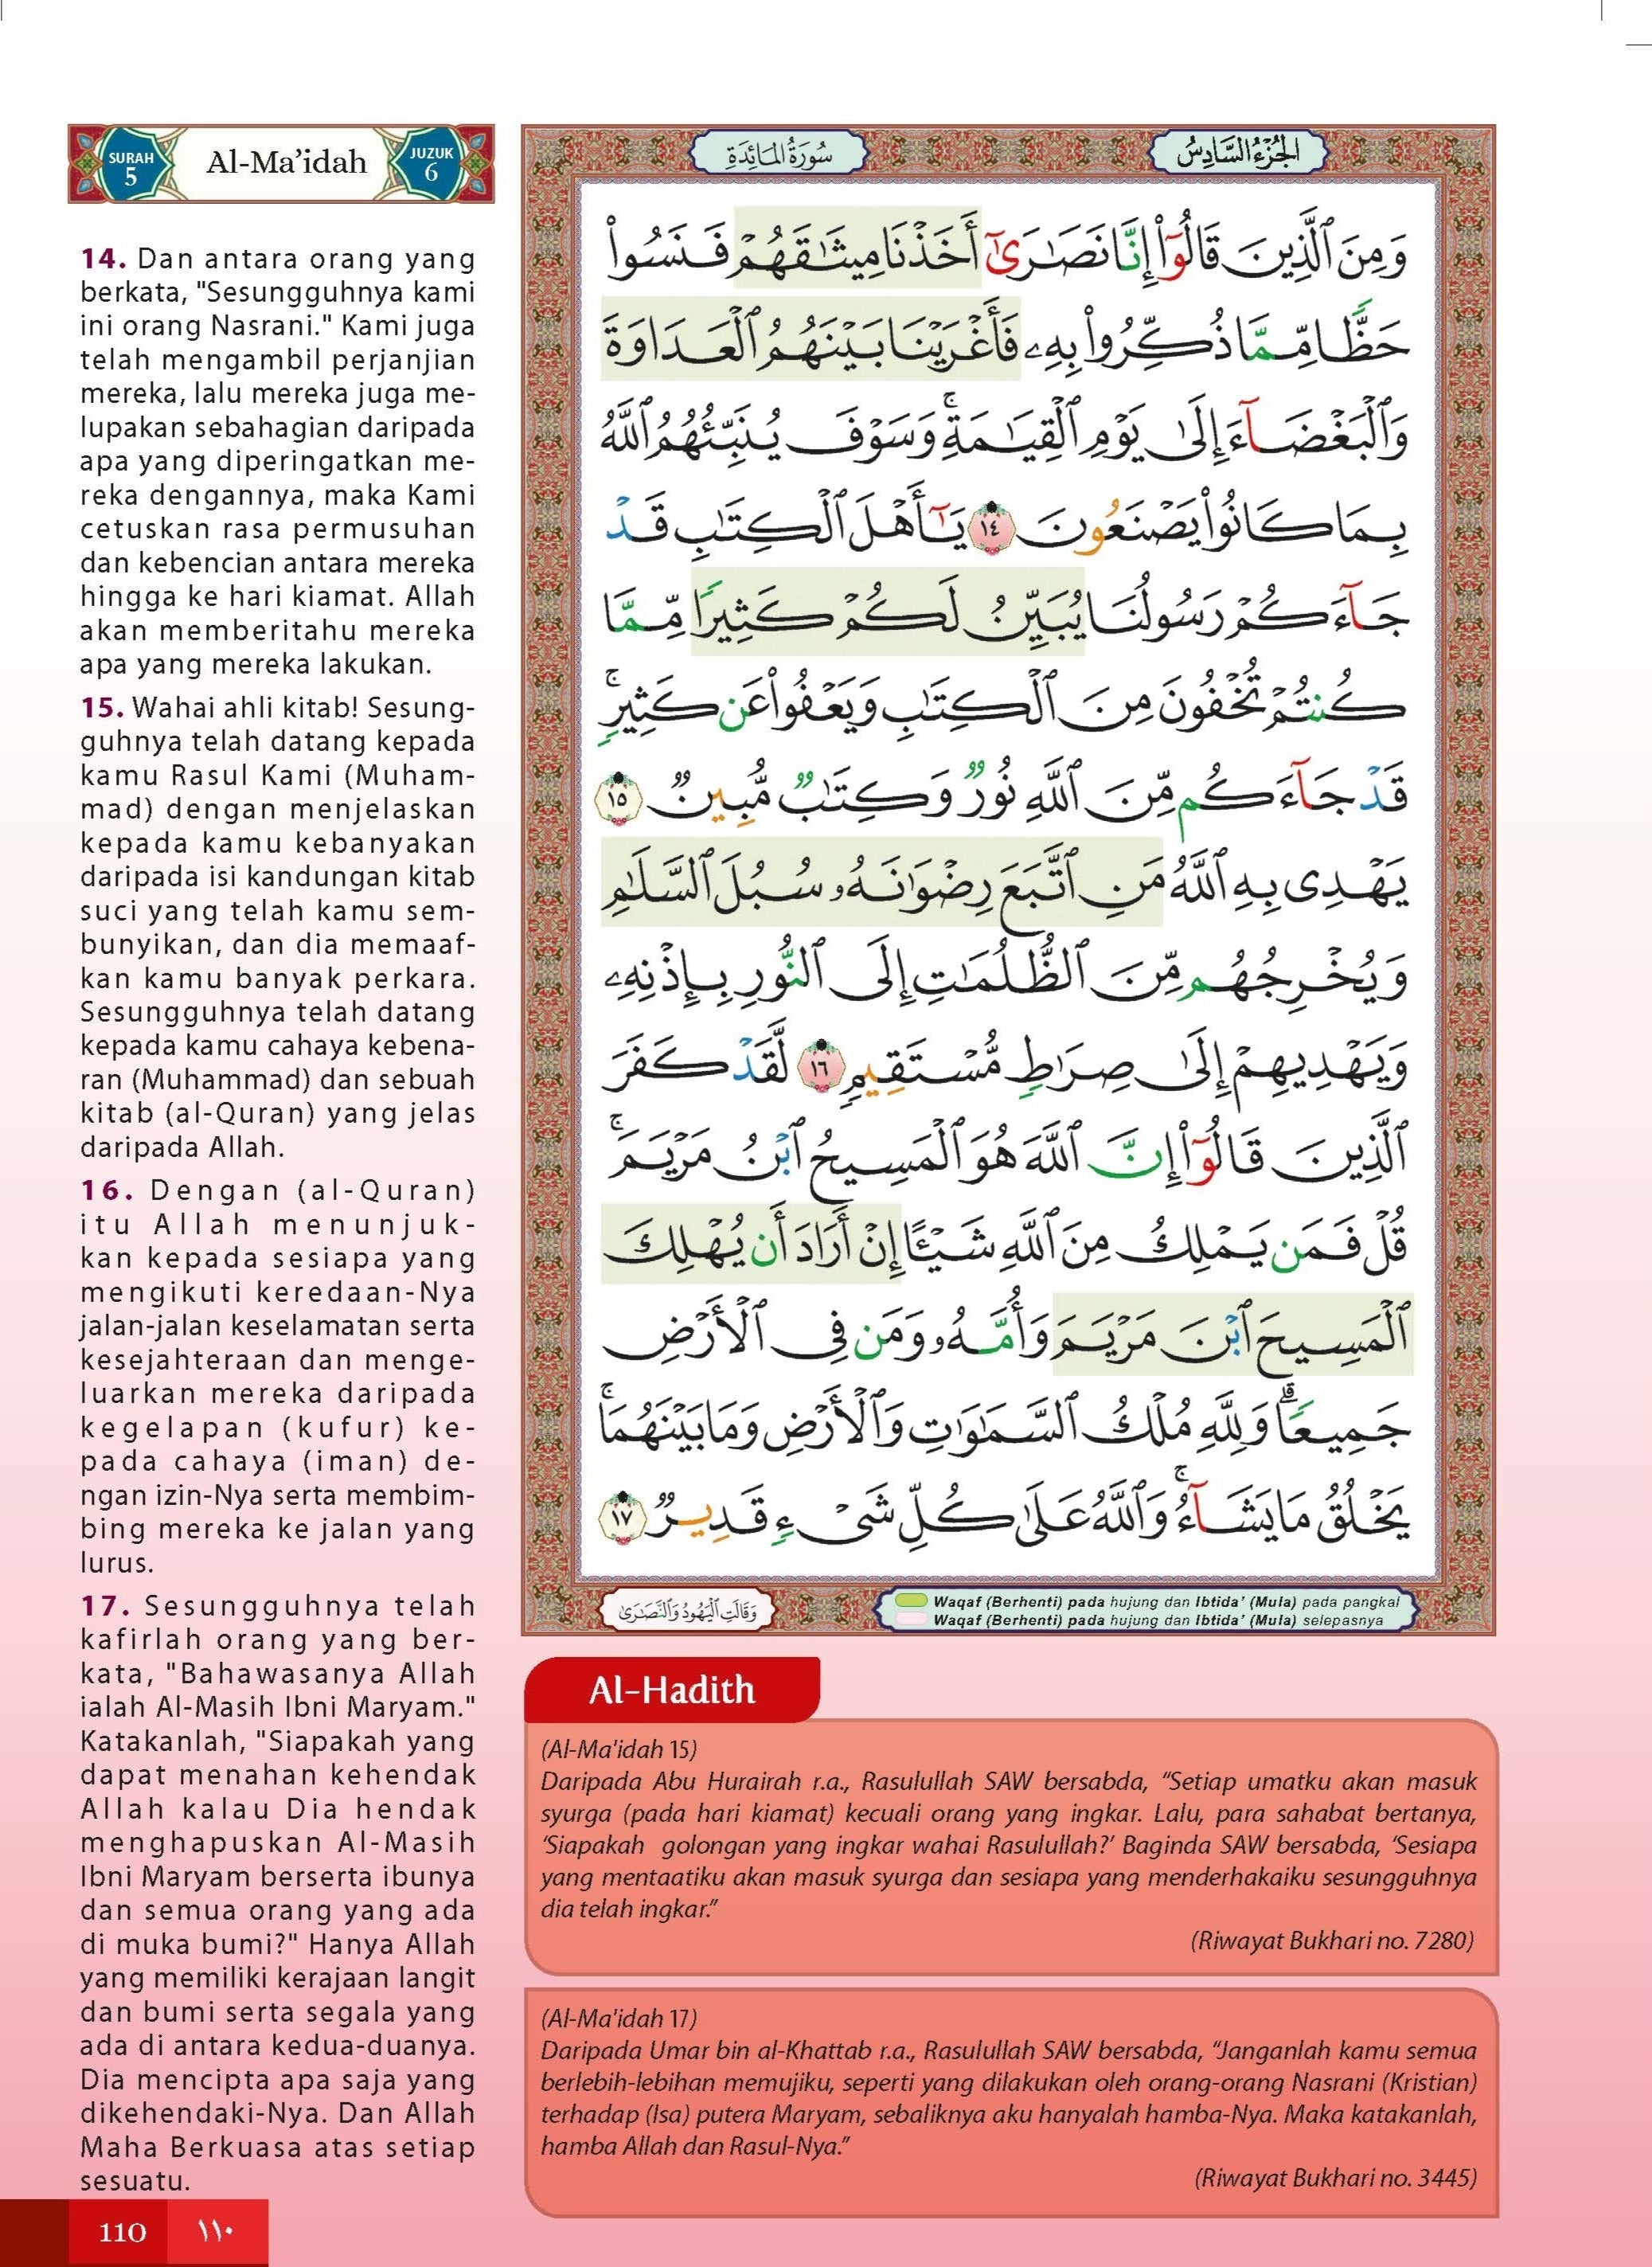 SURAH
5
Al-Ma’idah
JUZUK
6
14. Dan antara orang yang
berkata, "Sesungguhnya kami
ini orang Nasrani." Kami juga
telah mengambil perjanjian
mereka, lalu mereka juga me-
lupakan sebahagian daripada
apa yang diperingatkan me-
reka dengannya, maka Kami
cetuskan rasa permusuhan
dan kebencian antara mereka
hingga ke hari kiamat. Allah
akan memberitahu mereka
apa yang mereka lakukan.
15. Wahai ahli kitab! Sesung-
guhnya telah datang kepada
kamu Rasul Kami (Muham-
mad) dengan menjelaskan
kepada kamu kebanyakan
daripada isi kandungan kitab
suci yang telah kamu sem-
bunyikan, dan dia memaaf-
kan kamu banyak perkara.
Sesungguhnya telah datang
kepada kamu cahaya kebena-
ran (Muhammad) dan sebuah
kitab (al-Quran) yang jelas
daripada Allah.
16. Dengan (al-Quran)
itu Allah menunjuk-
kan kepada sesiapa yang
mengikuti keredaan-Nya
jalan-jalan keselamatan serta
kesejahteraan dan menge-
luarkan mereka daripada
kegelapan (kufur) ke-
pada cahaya (iman) de-
ngan izin-Nya serta membim-
bing mereka ke jalan yang
lurus.
17. Sesungguhnya telah
kafirlah orang yang ber-
kata, "Bahawasanya Allah
ialah Al-Masih Ibni Maryam."
Katakanlah, "Siapakah yang
dapat menahan kehendak
Allah kalau Dia hendak
menghapuskan Al-Masih
Ibni Maryam berserta ibunya
dan semua orang yang ada
di muka bumi?" Hanya Allah
yang memiliki kerajaan langit
dan bumi serta segala yang
ada di antara kedua-duanya.
Dia mencipta apa saja yang
dikehendaki-Nya. Dan Allah
Maha Berkuasa atas setiap
sesuatu.
الجُزْءُ السَّادِسُ
سُورَةُ المَائِدَةِ
وَمِنَ ٱلَّذِينَ قَالُوٓاْ إِنَّا نَصَٰرَىٰٓ أَخَذْنَا مِيثَٰقَهُمْ فَنَسُواْ
حَظًّا مِّمَّا ذُكِّرُواْ بِهِۦ فَأَغْرَيْنَا بَيْنَهُمُ ٱلْعَدَاوَةَ
وَٱلْبَغْضَآءَ إِلَىٰ يَوْمِ ٱلْقِيَٰمَةِۚ وَسَوْفَ يُنَبِّئُهُمُ ٱللَّهُ
بِمَا كَانُواْ يَصْنَعُونَ ١٤ يَٰٓأَهْلَ ٱلْكِتَٰبِ قَدْ
جَآءَكُمْ رَسُولُنَا يُبَيِّنُ لَكُمْ كَثِيرًا مِّمَّا
كُنتُمْ تُخْفُونَ مِنَ ٱلْكِتَٰبِ وَيَعْفُواْ عَن كَثِيرٍۚ
قَدْ جَآءَكُم مِّنَ ٱللَّهِ نُورٌ وَكِتَٰبٌ مُّبِينٌ ١٥
يَهْدِى بِهِ ٱللَّهُ مَنِ ٱتَّبَعَ رِضْوَٰنَهُۥ سُبُلَ ٱلسَّلَٰمِ
وَيُخْرِجُهُم مِّنَ ٱلظُّلُمَٰتِ إِلَى ٱلنُّورِ بِإِذْنِهِۦ
وَيَهْدِيهِمْ إِلَىٰ صِرَٰطٍ مُّسْتَقِيمٍ ١٦ لَّقَدْ كَفَرَ
ٱلَّذِينَ قَالُوٓاْ إِنَّ ٱللَّهَ هُوَ ٱلْمَسِيحُ ٱبْنُ مَرْيَمَۚ
قُلْ فَمَن يَمْلِكُ مِنَ ٱللَّهِ شَيْـًٔا إِنْ أَرَادَ أَن يُهْلِكَ
ٱلْمَسِيحَ ٱبْنَ مَرْيَمَ وَأُمَّهُۥ وَمَن فِى ٱلْأَرْضِ
جَمِيعًاۗ وَلِلَّهِ مُلْكُ ٱلسَّمَٰوَٰتِ وَٱلْأَرْضِ وَمَا بَيْنَهُمَاۚ
يَخْلُقُ مَا يَشَآءُۚ وَٱللَّهُ عَلَىٰ كُلِّ شَىْءٍ قَدِيرٌ ١٧
وَقَالَتِ ٱلْيَهُودُ وَٱلنَّصَٰرَىٰ
Waqaf (Berhenti) pada hujung dan Ibtida’ (Mula) pada pangkal
Waqaf (Berhenti) pada hujung dan Ibtida’ (Mula) selepasnya
Al-Hadith
(Al-Ma'idah 15)
Daripada Abu Hurairah r.a., Rasulullah SAW bersabda, “Setiap umatku akan masuk
syurga (pada hari kiamat) kecuali orang yang ingkar. Lalu, para sahabat bertanya,
‘Siapakah golongan yang ingkar wahai Rasulullah?’ Baginda SAW bersabda, ‘Sesiapa
yang mentaatiku akan masuk syurga dan sesiapa yang menderhakaiku sesungguhnya
dia telah ingkar.”
(Riwayat Bukhari no. 7280)
(Al-Ma'idah 17)
Daripada Umar bin al-Khattab r.a., Rasulullah SAW bersabda, “Janganlah kamu semua
berlebih-lebihan memujiku, seperti yang dilakukan oleh orang-orang Nasrani (Kristian)
terhadap (Isa) putera Maryam, sebaliknya aku hanyalah hamba-Nya. Maka katakanlah,
hamba Allah dan Rasul-Nya.”
(Riwayat Bukhari no. 3445)
110
١١٠